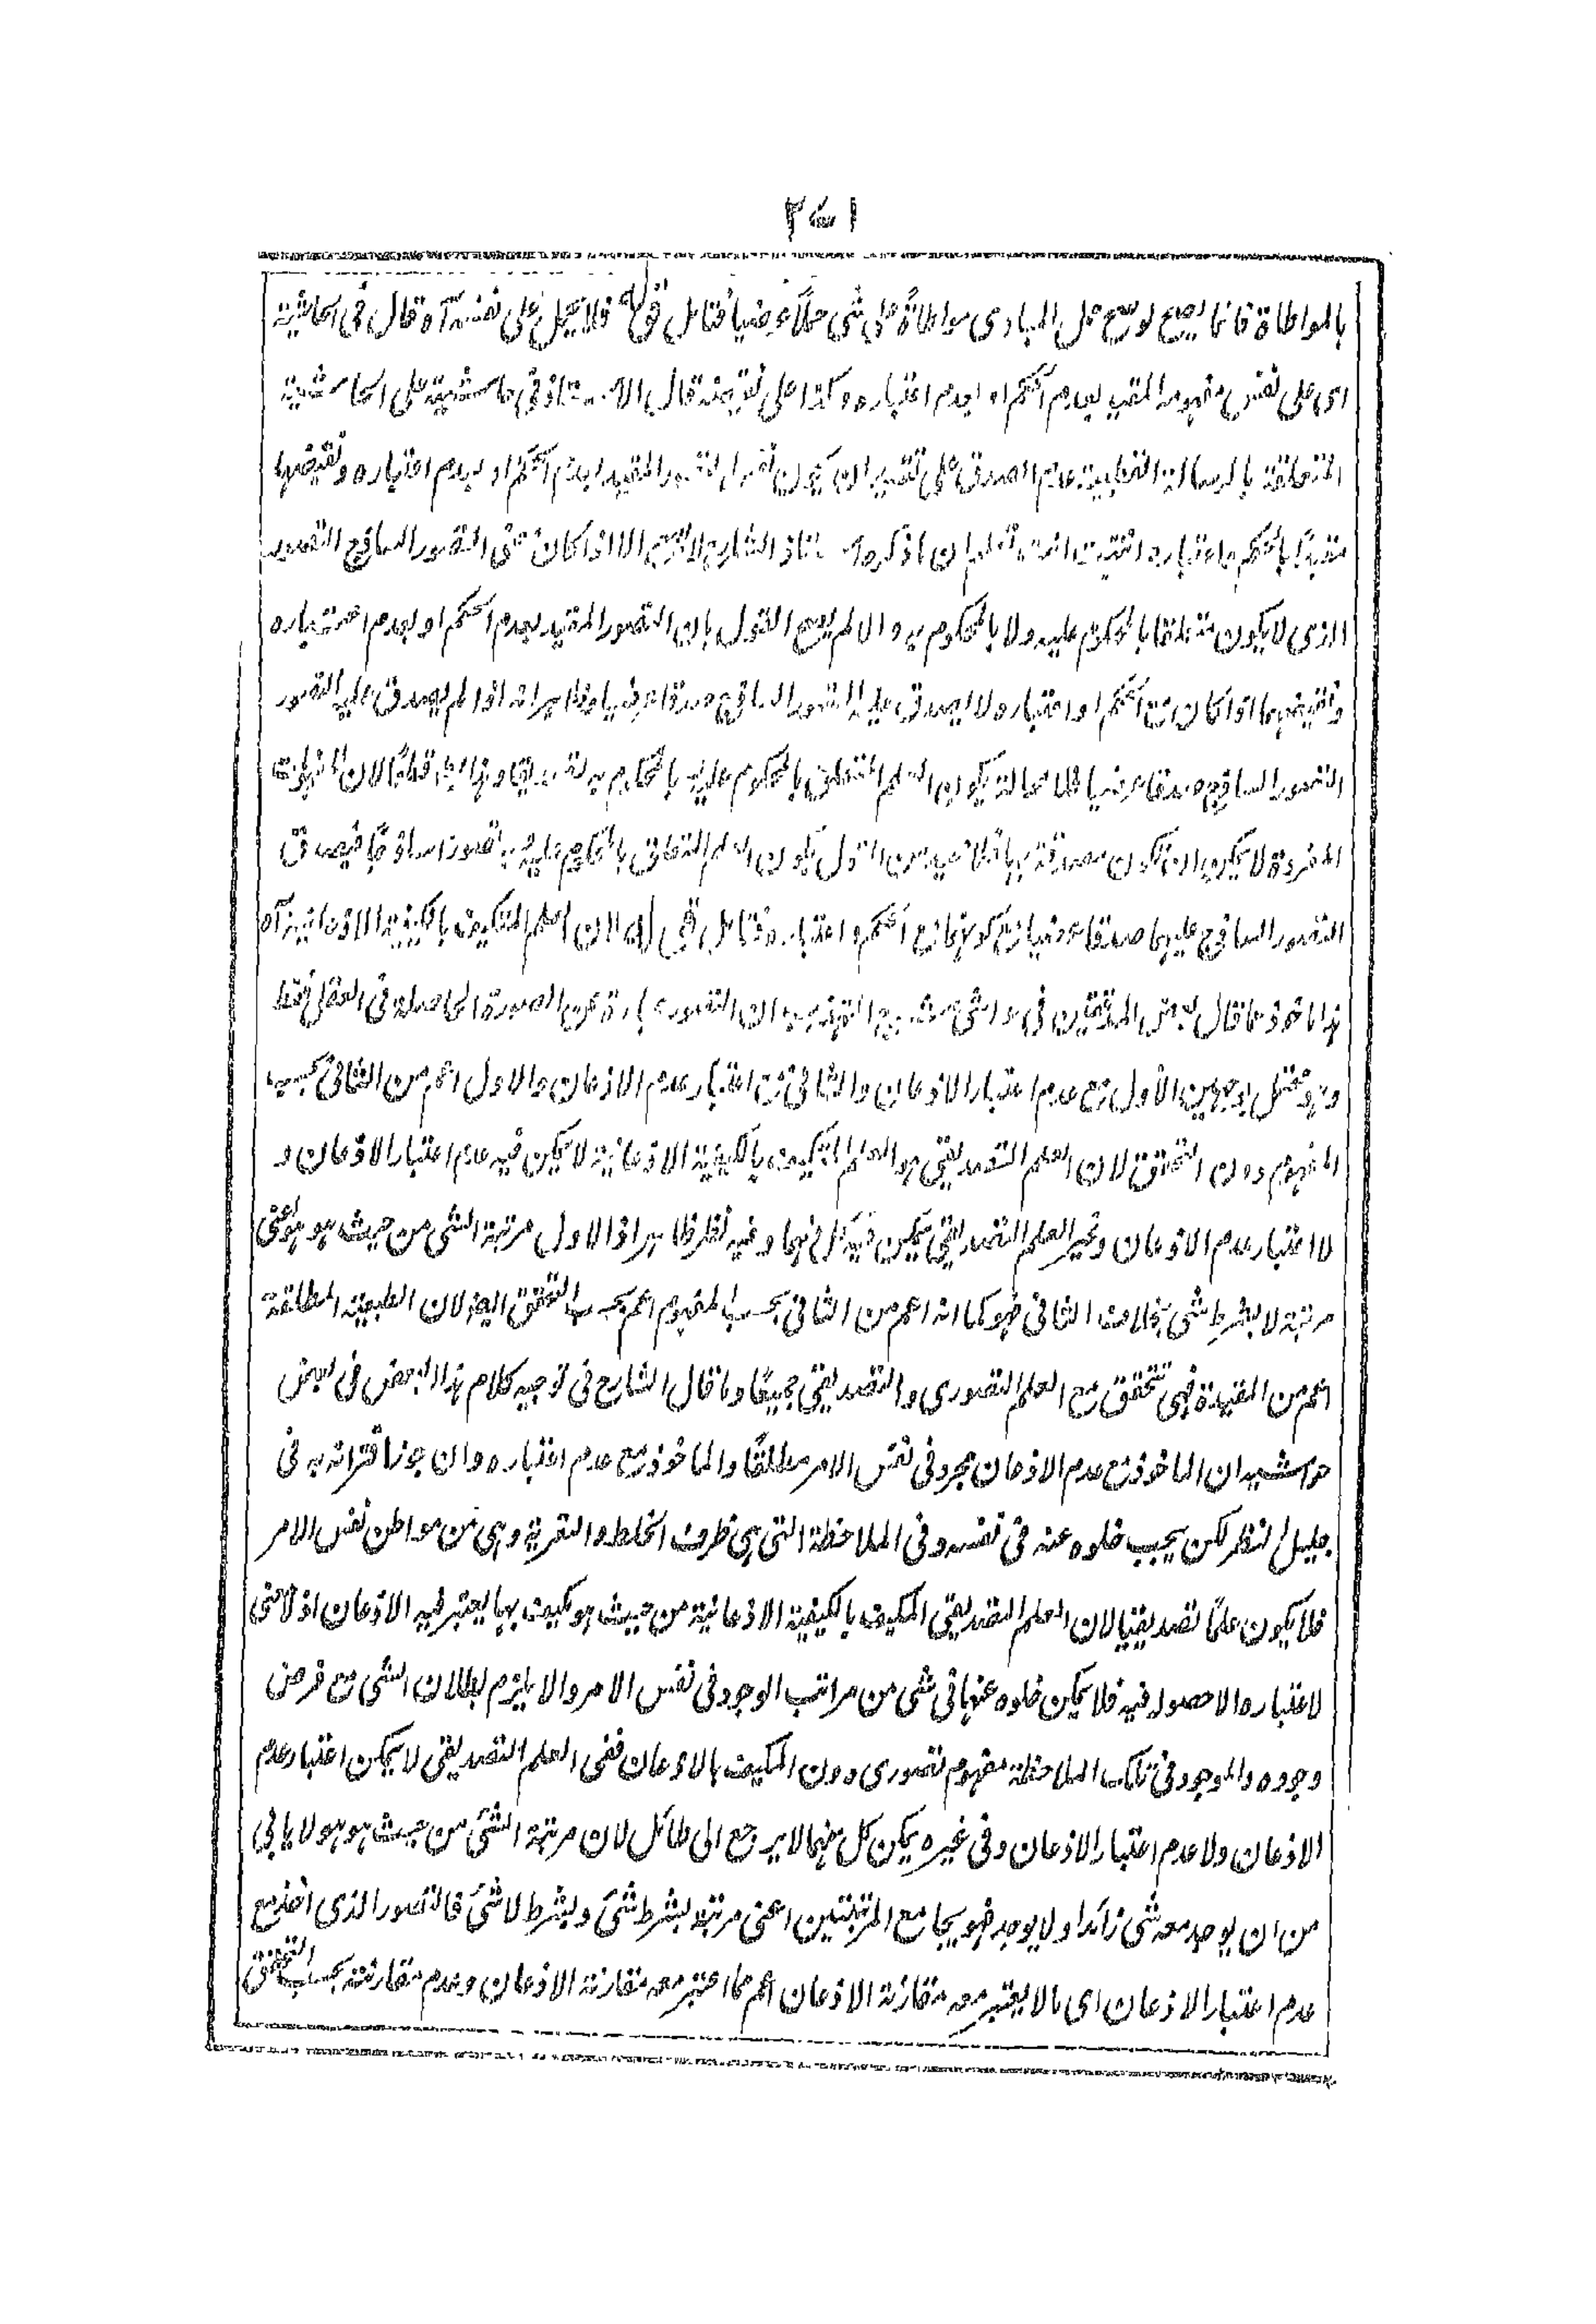 بالمواطاة فانما يصح لو صح حمل المبادى مواطاةً على شى حملاً عرضيا فتامل قوله فلا يحمل على نفسه آه قال فى الحاشية
اى على نفس مفهومه المقيد بعدم الحكم او بعدم اعتباره وكذا على نقيضه قال الاستاذ فى حاشيته على الحاشية
المتعلقة بالرسالة القطبية عدم الصدق على تقدير ان يكون نفس التصور المقيد بعدم الحكم او بعدم اعتباره ونقيضها
مقيدًا بالحكم واعتباره انتهت انت تعلم ان ما ذكره الاستاذ الشارح لا يصح الا اذا كان معنى التصور الساذج التصور
الذى لا يكون متعلقا بالمحكوم عليه ولا بالمحكوم به والا لم يصح القول بان التصور المقيد بعدم الحكم او بعدم اعتباره
ونقيضهما اذا كان مع الحكم او اعتباره لا يصدق عليه التصور الساذج صدقا عرضيا وظاهر انه اذا لم يصدق عليه التصور
التصور الساذج صدقا عرضيا فلا محالة يكون العلم المتعلق بالمحكوم عليه بالمحكوم به تصديقا وهذا باطل قطعًا لان المفهومات
المفردة لا يمكن ان تكون مصدقة بها فلا بد من القول بكون العلم المتعلق بالمحكوم عليه وبه تصورا ساذجًا فيصدق
التصور الساذج عليهما صدقا عرضيا مع كونهما مع الحكم واعتباره فتامل قوله لان العلم المتكيف بالكيفية الاذعانية آه
هذا ماخوذ مما قال بعض المدققين فى حواشى شرح التهذيب ان التصور عبارة عن الصورة الحاصلة فى العقل فقط
وهو محتمل بوجهين الأول مع عدم اعتبار الاذعان والثانى مع اعتبار عدم الاذعان والاول اعم من الثانى بحسب
المفهوم دون التحقق لان العلم التصديقى هو العلم المتكيف بالكيفية الاذعانية لا يمكن فيه عدم اعتبار الاذعان و
لا اعتبار عدم الاذعان وغير العلم التصديقى يمكن فيه كل منهما وفيه نظر ظاهر اذ الاول مرتبة الشى من حيث هو هو اعنى
مرتبة لا بشرط شى بخلاف الثانى فهو كما انه اعم من الثانى بحسب المفهوم اعم بحسب التحقق ايضا لان الطبيعة المطلقة
اعم من المقيدة فهى تتحقق مع العلم التصورى والتصديقى جميعًا وما قال الشارح فى توجيه كلام هذا البعض فى بعض
حواشيه ان الماخوذ مع عدم الاذعان مجرد فى نفس الامر مطلقًا والماخوذ مع عدم اعتباره وان جوز اقترانه به فى
جليل النظر لكن يجب خلوه عنه فى نفسه وفى الملاحظة التى هى ظرف الخلط والتعرية وهى من مواطن نفس الامر
فلا يكون علمًا تصديقيا لان العلم التصديقى المكيف بالكيفية الاذعانية من حيث هو مكيف بها يعتبر فيه الاذعان اذ لا معنى
لاعتباره الا حصوله فيه فلا يمكن خلوه عنها فى شى من مراتب الوجود فى نفس الامر والا يلزم بطلان الشى مع فرض
وجوده والموجود فى تلك الملاحظة مفهوم تصورى دون المكيف بالاذعان ففى العلم التصديقى لا يمكن اعتبار عدم
الاذعان ولا عدم اعتبار الاذعان وفى غيره يمكن كل منهما لا يرجع الى طائل لان مرتبة الشئ من حيث هو هو لا يابى
من ان يوجد معه شى زائد او لا يوجد فهو يجامع المرتبتين اعنى مرتبة بشرط شئ وبشرط لا شئ فالتصور الذى اخذ مع
عدم اعتبار الاذعان اى ما لا يعتبر معه مقارنة الاذعان اعم مما اعتبر معه مقارنة الاذعان وعدم مقارنته بحسب التحقق